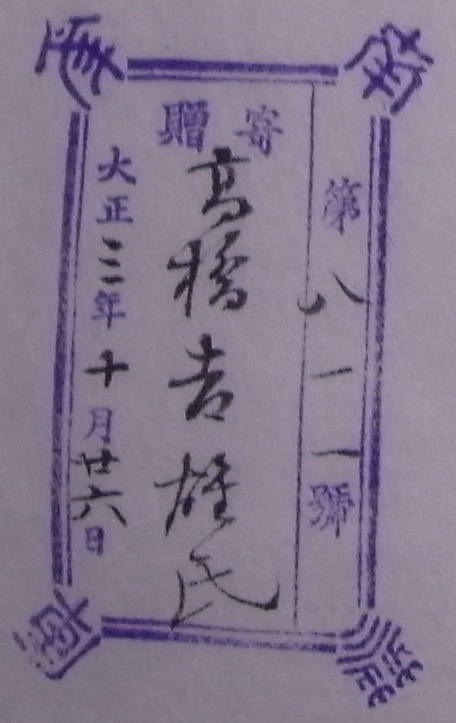 第八一一號
寄贈
高橋吉雄氏
大正三年十月廿六日